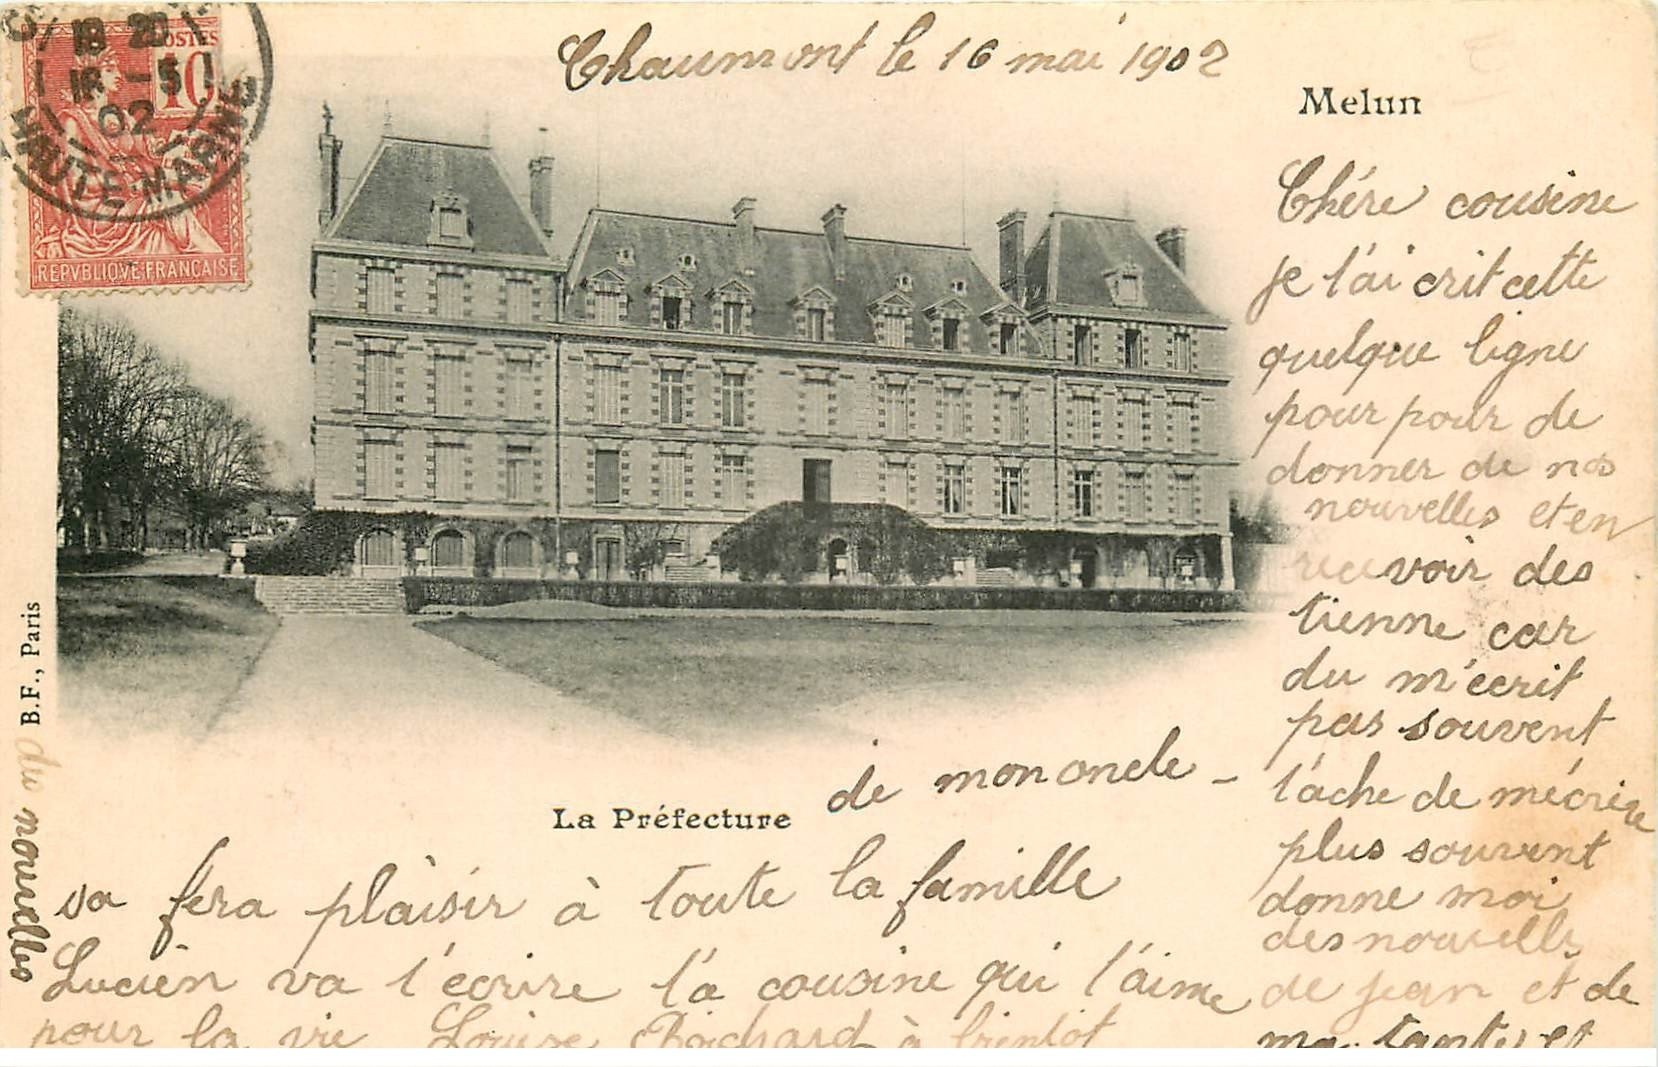 Chaumont le 16 mai 1902
Melun
Chére cousine
je t'ai crit cette
quelque ligne
pour pour de
donner de nos
nouvelles et en
recevoir des
tienne car
du m'écrit
pas souvent
tâche de mécrire
plus souvent
donne moi
des nouvells
de jean et de
ma tante et
de mon oncle -
sa fera plaisir à toute la famille
Lucien va t'écrire ta cousine qui t'aime
pour la vie Louise Boichard à bientot
du nouvelles
La Préfecture
B.F., Paris
18 20
16 -5
02
HAUTE-MARNE
POSTES
10
REPVBLIQVE FRANÇAISE